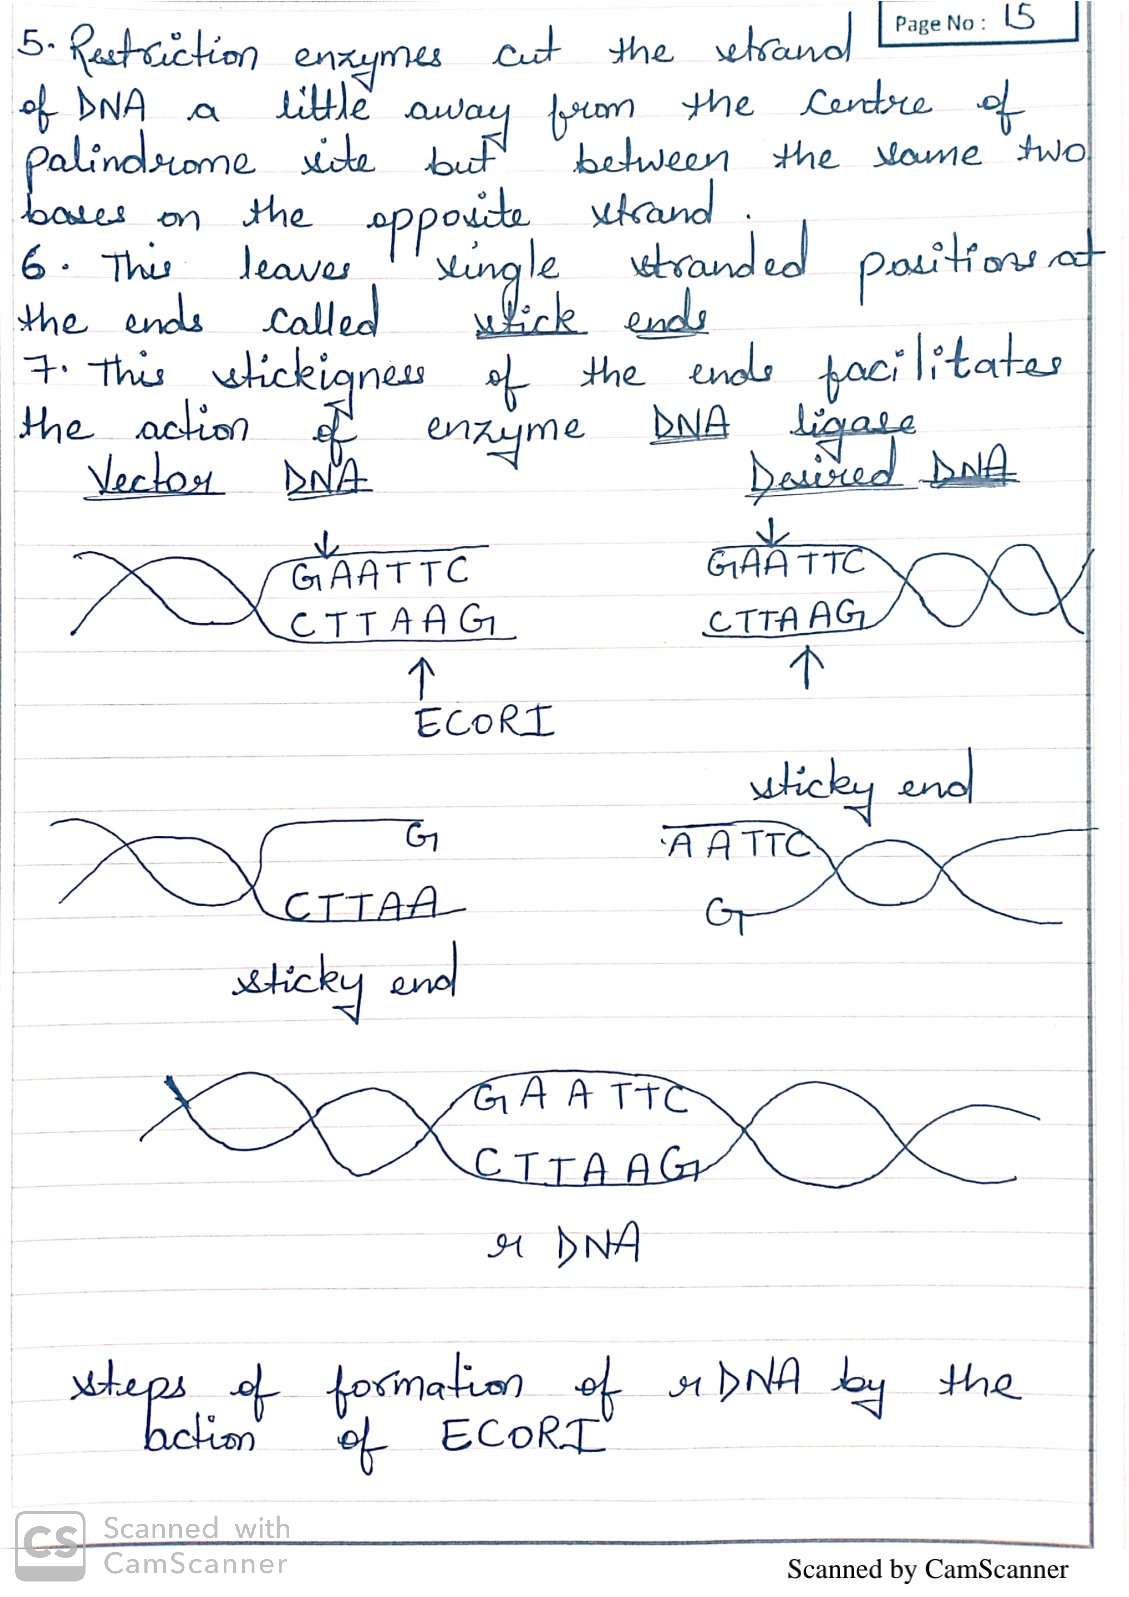 Page No : 15
5. Restriction enzymes cut the strand
of DNA a little away from the centre of
palindrome site but between the same two
bases on the opposite strand.
6. This leaves single stranded positions at
the ends called stick ends
7. This stickigness of the ends facilitates
the action of enzyme DNA ligase
Vector DNA Desired DNA
GAATTC GAATTC
CTTAAG CTTAAG
ECORI
sticky end
G AATTC
CTTAA G
sticky end
GAATTC
CTTAAG
r DNA
steps of formation of r DNA by the
action of ECORI
CS Scanned with
CamScanner
Scanned by CamScanner